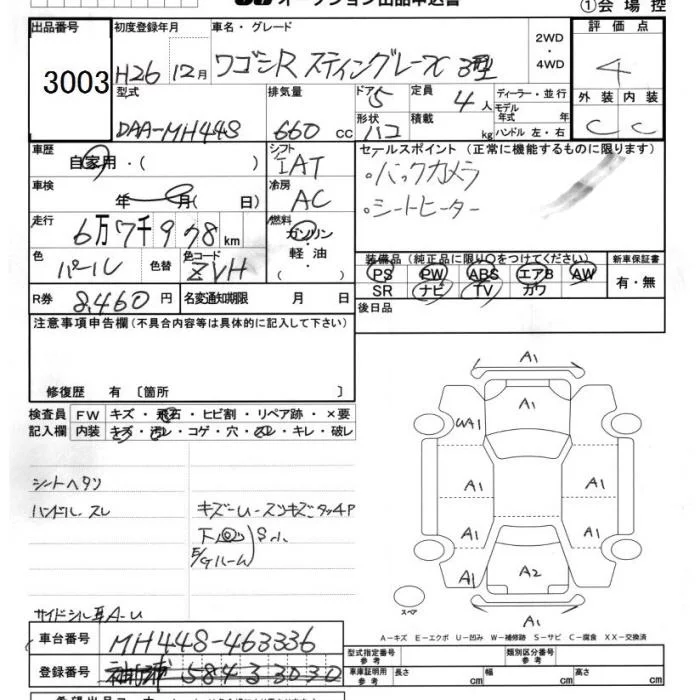 オークション出品申込書 ①会場控
出品番号 初度登録年月 車名・グレード 2WD ・ 4WD 評価点
3003 H26 12月 ワゴンR スティングレーX 3型 4
型式 排気量 ドア 5 定員 4人 ディーラー・並行 外装 内装
DAA-MH44S 660cc 形状 ハコ 積載 kg モデル年式 年 ハンドル 左・右 C C
車歴 自家用・( ) シフト IAT セールスポイント (正常に機能するものに限ります)
車検 年 月( 日) 冷房 AC 。バックカメラ
走行 6万7千978km 燃料 ガソリン・軽油・( ) 。シートヒーター
色 パール 色替 色コード ZVH 装備品 (純正品に限り〇をつけてください) 新車保証書
PS PW ABS エアB AW 有・無
R券 8,460円 名変通知期限 月 日 SR ナビ TV カワ
注意事項申告欄(不具合内容等は具体的に記入して下さい) 後日品
修復歴 有 〔箇所 〕
検査員 FW キズ・飛石・ヒビ割・リペア跡・×要
記入欄 内装 キズ・汚レ・コゲ・穴・スレ・キレ・破レ
シートヘタリ
ハンドル スレ キズ-U-スリキズ タッチP
下回 Sハ
E/Gルーム
A1
A1
WA1
A1 A1
A1 A1
A1 A2
A1
スペア
サイドシル A-U
A-キズ E-エクボ U-凹み W-補修跡 S-サビ C-腐食 XX-交換済
車台番号 MH44S-463336 型式指定番号 参考 類別区分番号 参考
登録番号 584 3030 車庫証明用 参考 長さ cm 幅 cm 高さ cm
希望出品コーナー